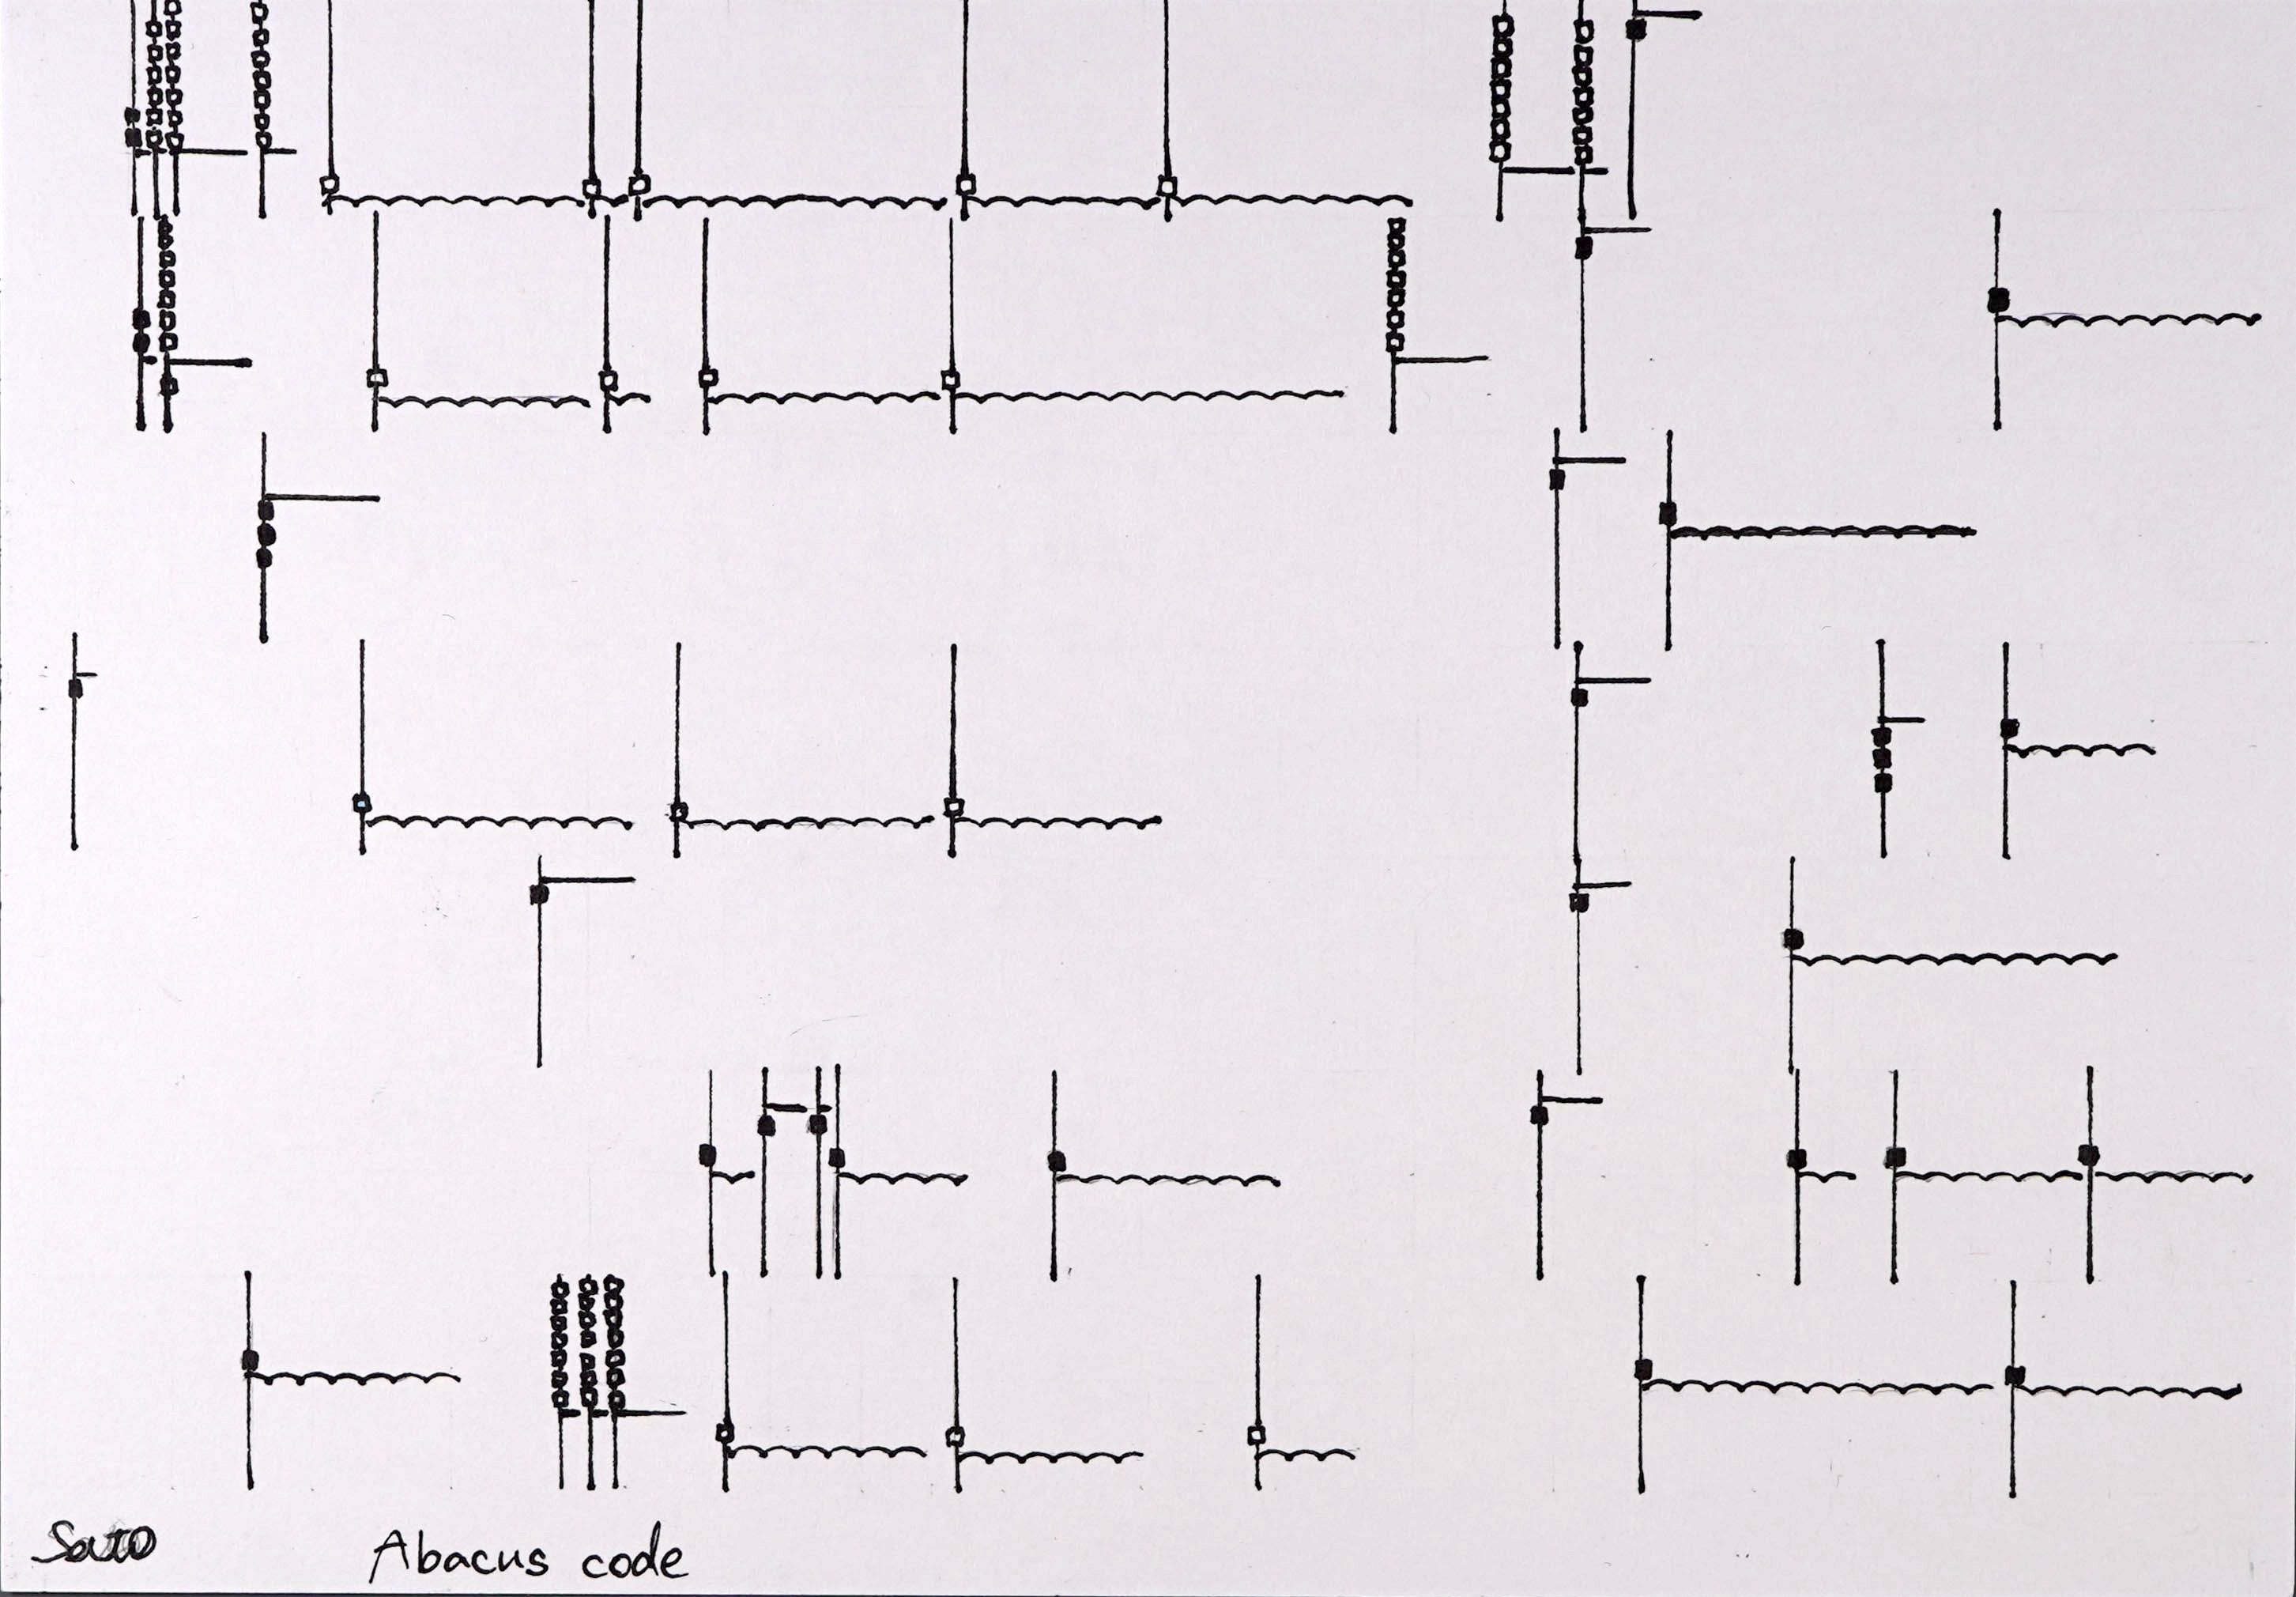 Sato Abacus code